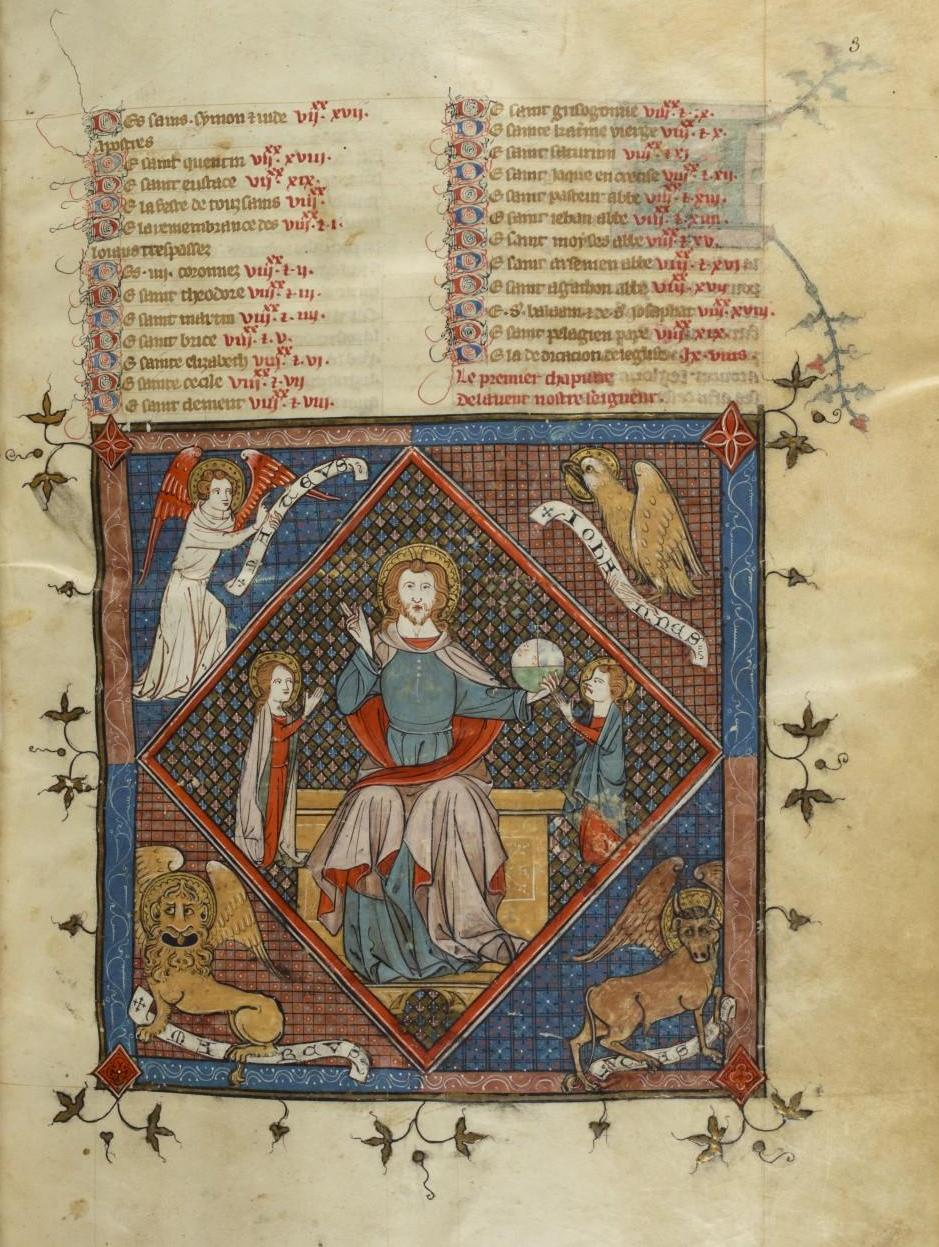 3
Des sains. symon z iude vijxx. xvij.
apostres
De saint quentin vijxx. xviij.
De saint eustace vijxx. xix.
De la feste de touz sains viijxx.
De la remembrance des viijxx. z i.
loiaus trespassez
Des .iiij. coronnez viijxx. z ij.
De saint theodore viijxx. z iij.
De saint martin viijxx. z iiij.
De saint brice viijxx. z v.
De sainte elizabeth viijxx. z vi.
De sainte cecile viijxx. z vij
De saint clement viijxx. z viij.
De saint grisogonne viijxx. z .x.
De sainte katerine vierge viijxx. z x.
De saint saturnin viijxx. z xj
De saint iaque en viijxx. z xij.
De saint pasteur abbe viijxx. z xiij.
De saint iehan abbe viijxx. z xiiij.
De saint moyses abbe viijxx. z xv.
De saint arsenien abbe viijxx. z xvi
De saint agathon abbe viijxx. xvij
De .s. balaam. z de .s. iosaphat viijxx. xviij.
De saint pelagien pape viijxx. xix.
De la dedicacion de leglise Ix. vins.
Le premier chapitre
De lauent nostre seigneur.
MATEVS
IOHANNES
MARCVS
LVCAS